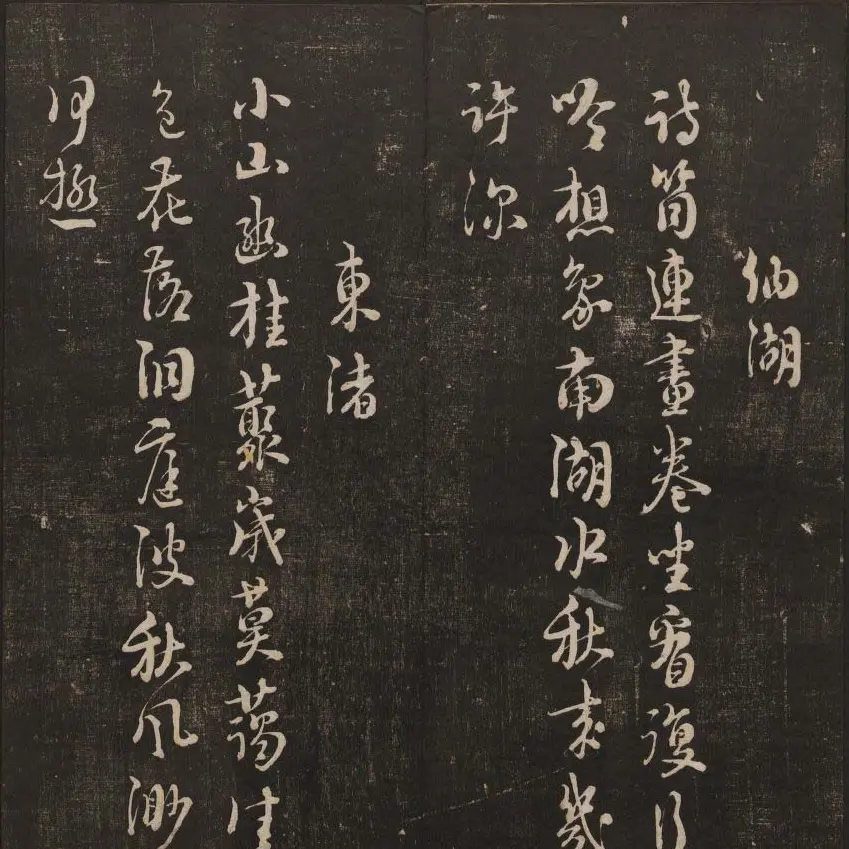 納湖
詩筒連畫卷坐看復行
吟想象南湖水秋來幾
許深
東渚
小山幽桂叢歲莫藹佳
色花落洞庭波秋風渺
何極